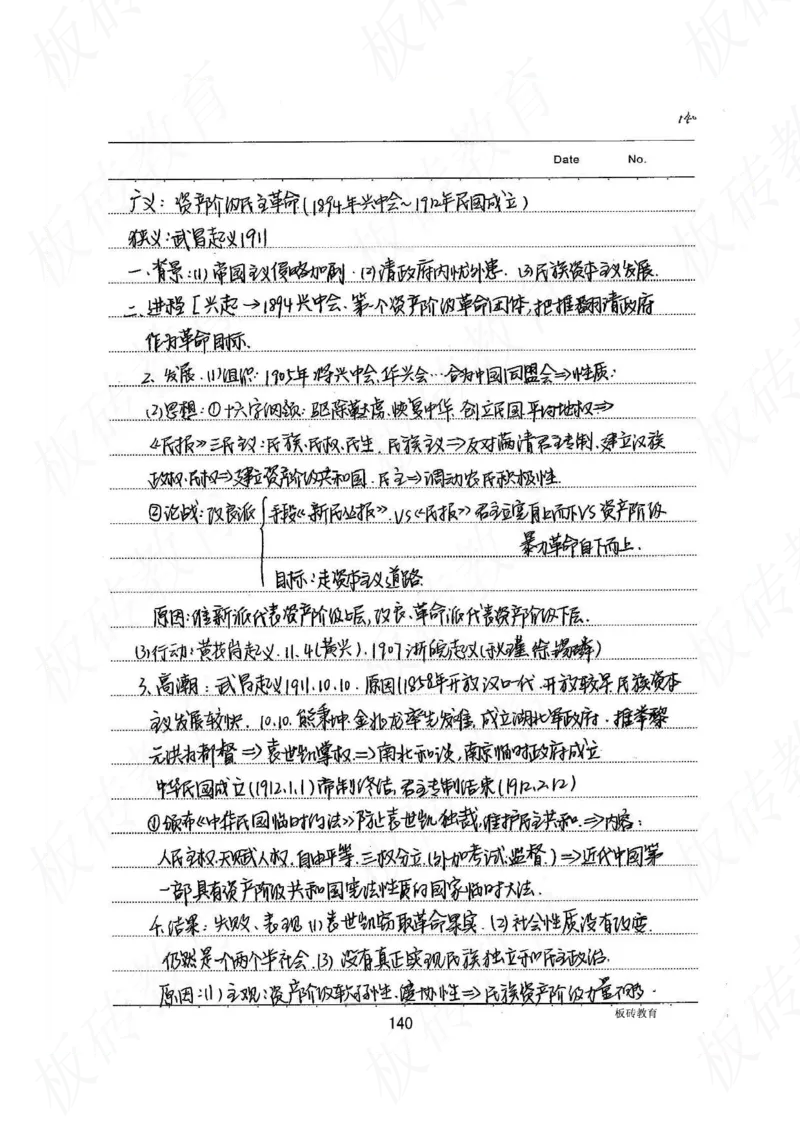 140
Date No.
广义：资产阶级民主革命(1894年兴中会~1912年民国成立)
狭义：武昌起义1911
一、背景：(1)帝国主义侵略加剧.(2)清政府内忧外患.(3)民族资本主义发展.
二、进程 [兴起→1894兴中会、第一个资产阶级革命团体，把推翻清政府
作为革命目标.
2、发展.(1)组织：1905年将兴中会、华兴会…合为中国同盟会⇒性质：
(2)思想：①十六字纲领：驱除鞑虏.恢复中华.创立民国.平均地权⇒
《民报》三民主义：民族、民权、民生.民族主义⇒反对满清君主专制.建立汉族
政权.民权⇒建立资产阶级共和国.民主⇒调动农民积极性.
②论战：改良派 手段《新民丛报》.VS《民报》君主立宪自上而下VS资产阶级
暴力革命自下而上.
目标：走资本主义道路.
原因：维新派代表资产阶级上层，改良.革命派代表资产阶级下层.
(3)行动：黄花岗起义.11.4(黄兴).1907浙皖起义(秋瑾.徐锡麟)
3、高潮：武昌起义1911.10.10.原因(1858年开放汉口一代.开放较早.民族资本
主义发展较快.10.10.熊秉坤.金兆龙率先发难.成立湖北军政府.推举黎
元洪为都督⇒袁世凯掌权.⇒南北和谈，南京临时政府成立
中华民国成立(1912.1.1)帝制终结，君主专制结束(1912.2.12)
①颁布《中华民国临时约法》防止袁世凯独裁.维护民主共和.⇒内容：
人民主权.天赋人权.自由平等.三权分立.(外加考试.监督.)⇒近代中国第
一部具有资产阶级共和国宪法性质的国家临时大法.
4.结果：失败、表现(1)袁世凯窃取革命果实.(2)社会性质没有改变.
仍然是一个两个半社会.(3)没有真正实现民族独立和民主政治.
原因：(1)主观：资产阶级软弱性.妥协性⇒民族资产阶级力量不够.
板砖教育
140
板砖教育